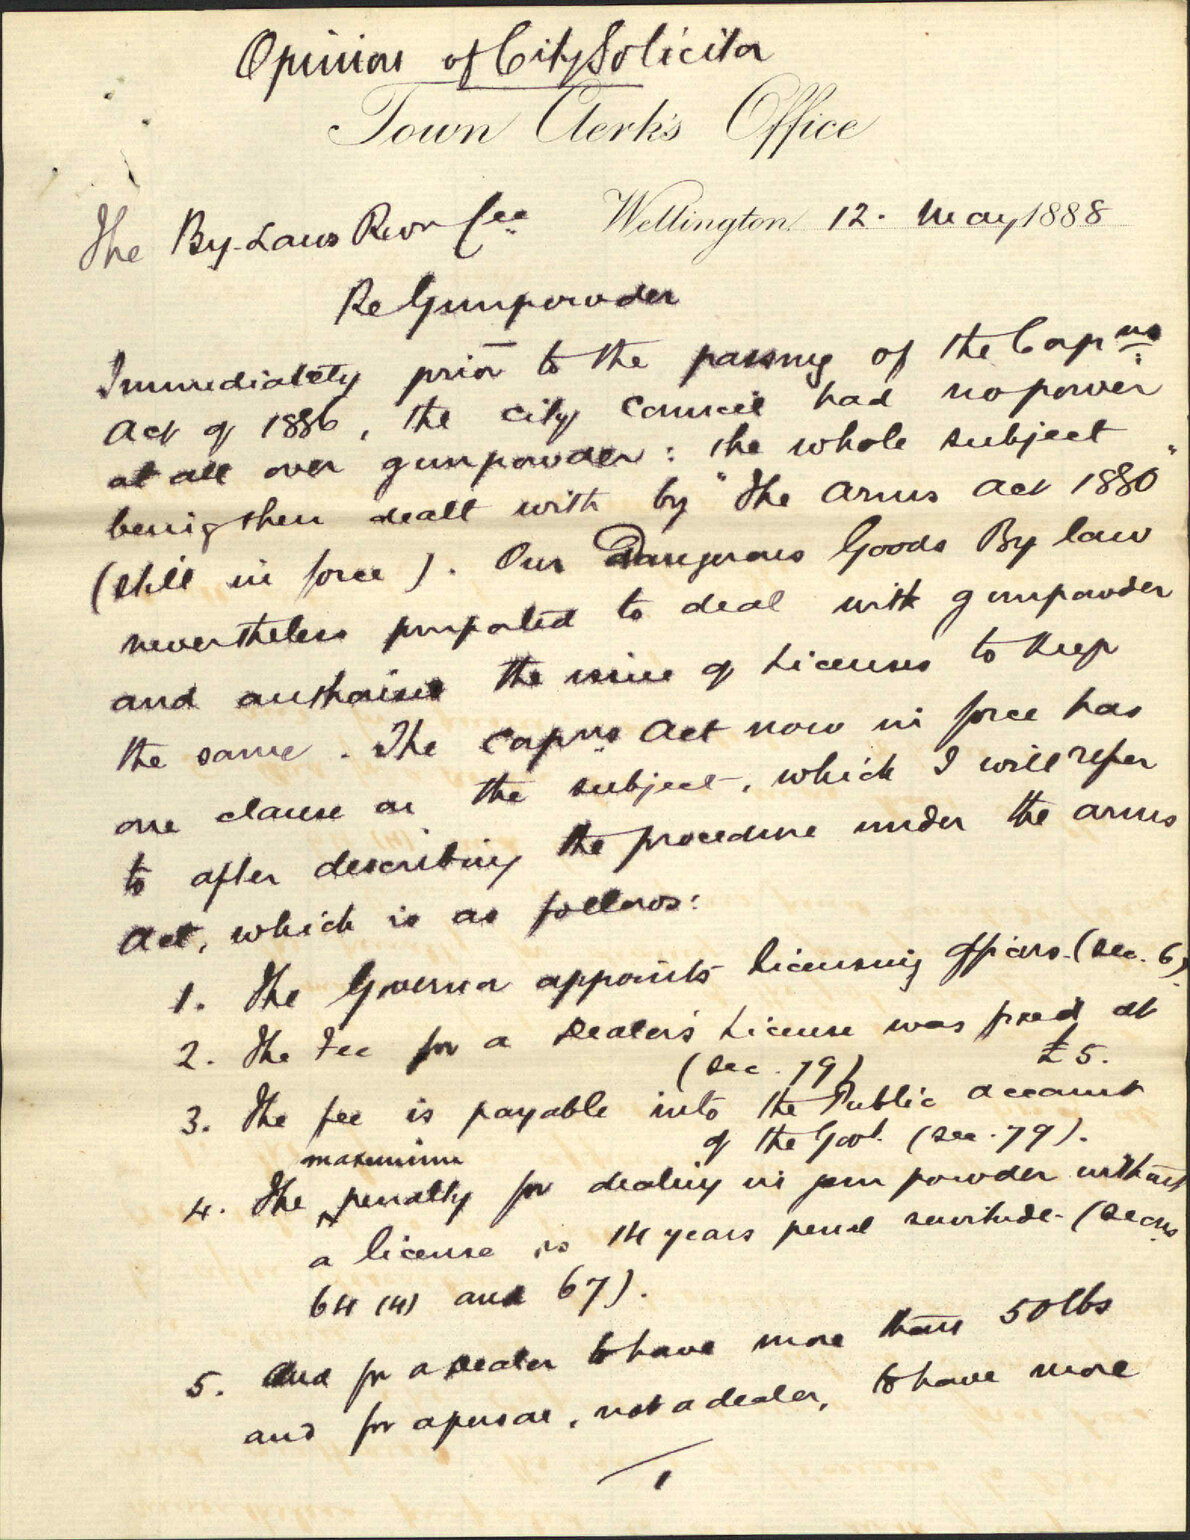 Opinion of City Solicitor
Town Clerk's Office
Wellington 12. May 1888
The By-Laws Revn Cee
Re Gunpowder
Immediately prior to the passing of the Corpns
Act of 1886, the city council had no power
at all over gunpowder: the whole subject
being then dealt with by "The Arms Act 1880"
(still in force). Our Dangerous Goods By law
nevertheless purported to deal with gunpowder
and authorise the issue of Licenses to keep
the same. The Corpns Act now in force has
one clause on the subject, which I will refer
to after describing the procedure under the Arms
Act, which is as follows:
1. The Governor appoints Licensing Officers. (sec. 6)
2. The Fee for a Dealer's License was fixed at
£5. (sec. 79)
3. The fee is payable into the Public Account
of the Govt. (sec. 79).
4. The maximum penalty for dealing in gun powder without
a license is 14 years penal servitude. (Secns
64 (4) and 67).
5. And for a Dealer to have more than 50 lbs
and for a person, not a dealer, to have more
1